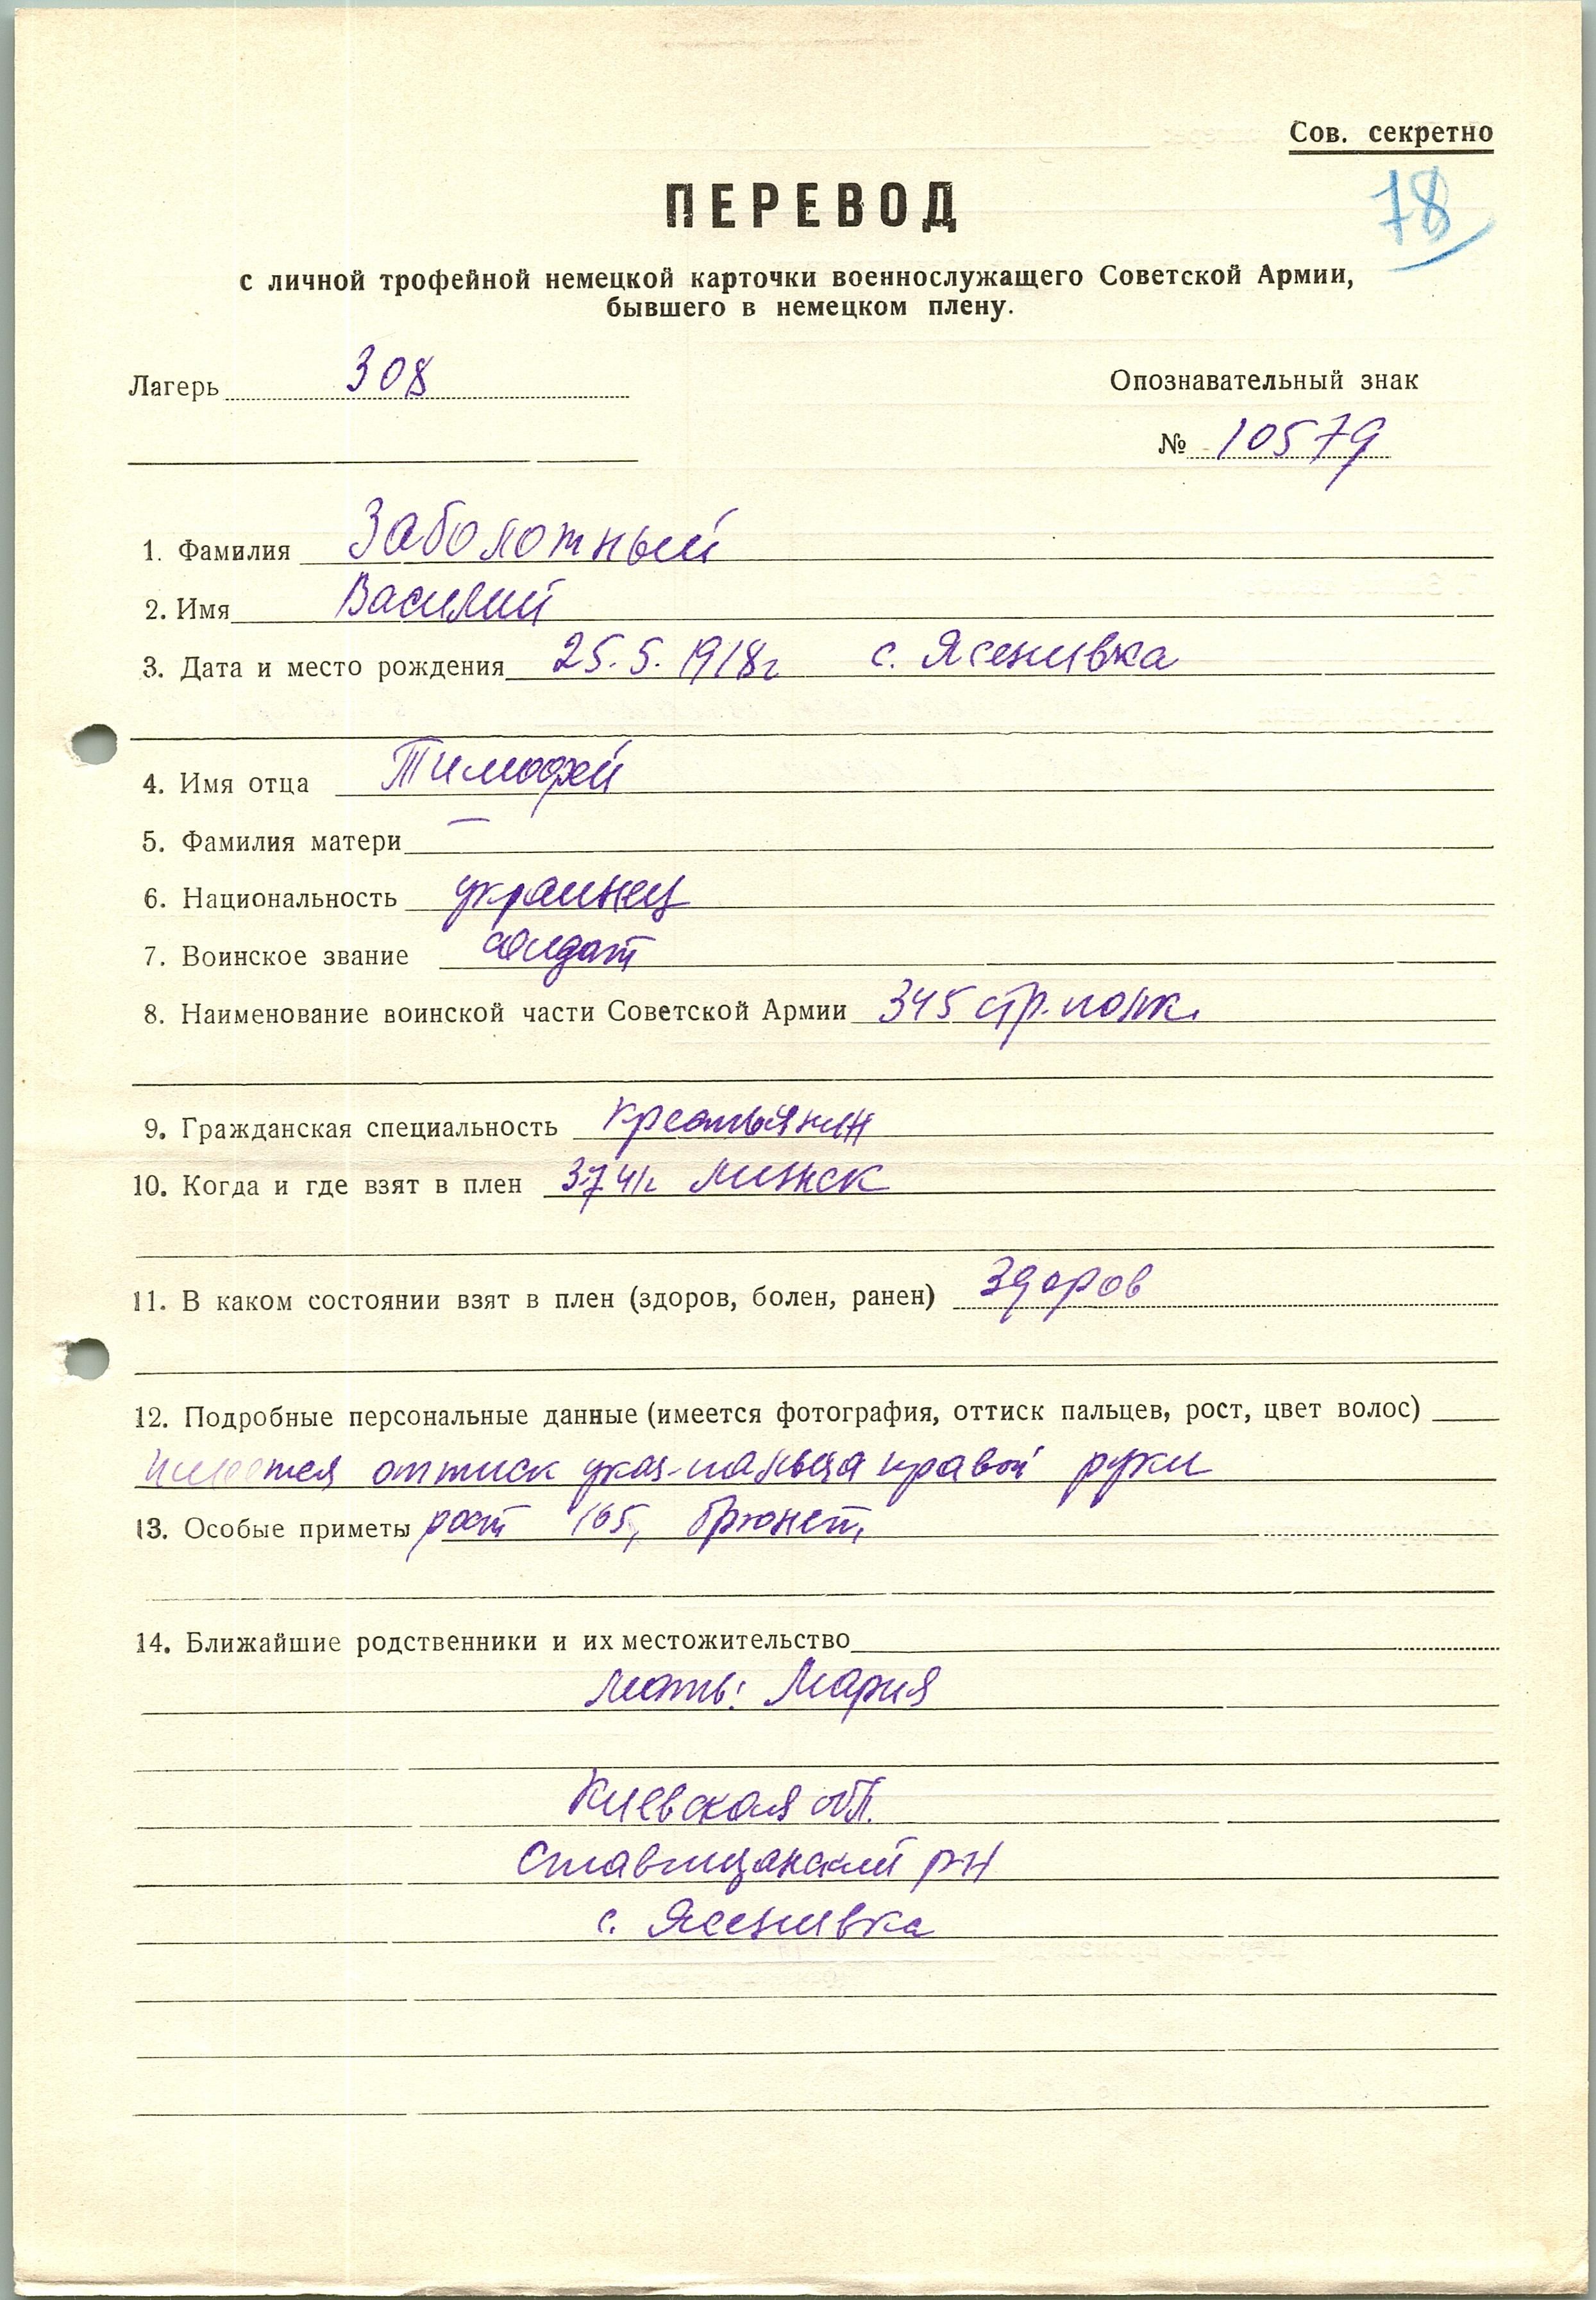 Сов. секретно
78
ПЕРЕВОД
с личной трофейной немецкой карточки военнослужащего Советской Армии,
бывшего в немецком плену.
Лагерь 308 Опознавательный знак
№ 10579
1. Фамилия Заболотный
2. Имя Василий
3. Дата и место рождения 25.5.1918г с. Ясенивка
4. Имя отца Тимофей
5. Фамилия матери —
6. Национальность украинец
7. Воинское звание солдат
8. Наименование воинской части Советской Армии 345 стр. полк.
9. Гражданская специальность крестьянин
10. Когда и где взят в плен 3.7.41г Минск
11. В каком состоянии взят в плен (здоров, болен, ранен) здоров
12. Подробные персональные данные (имеется фотография, оттиск пальцев, рост, цвет волос)
имеется оттиск указ-пальца правой руки
13. Особые приметы рост 165, брюнет,
14. Ближайшие родственники и их местожительство
мать: Мария
Киевская обл.
Ставищанский р-н
с. Ясенивка